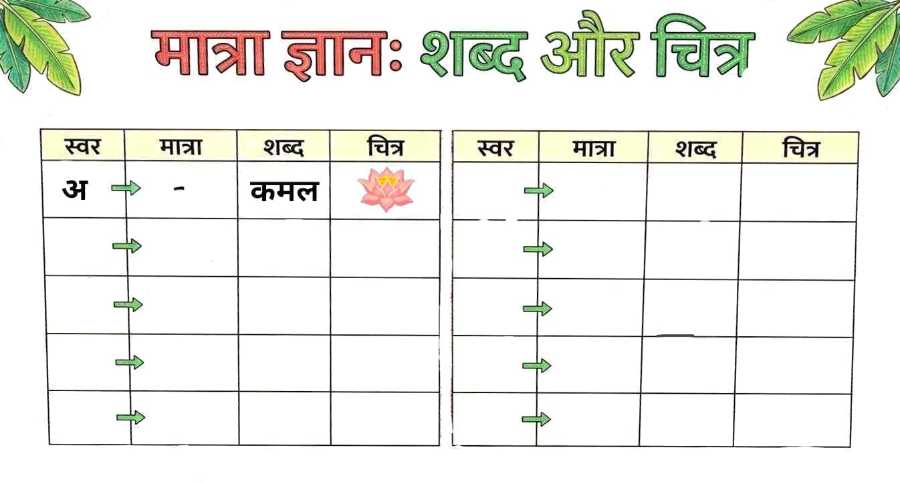 मात्रा ज्ञानः शब्द और चित्र
स्वर मात्रा शब्द चित्र स्वर मात्रा शब्द चित्र
अ - कमल